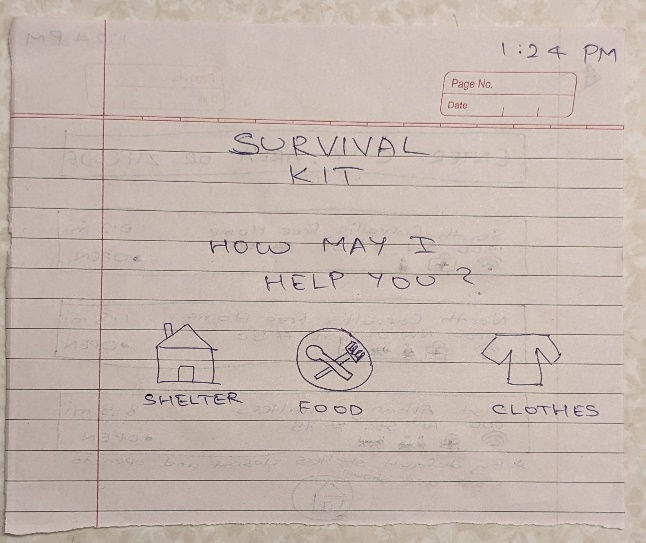 1:24 PM
Page No.
Date
SURVIVAL
KIT
HOW MAY I
HELP YOU?
SHELTER
FOOD
CLOTHES